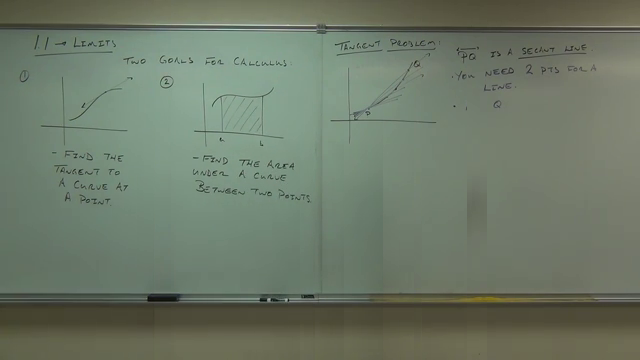 1.1 → LIMITS
TWO GOALS FOR CALCULUS:
①
- FIND THE
TANGENT TO
A CURVE AT
A POINT.
②
a b
- FIND THE AREA
UNDER A CURVE
BETWEEN TWO POINTS.
TANGENT PROBLEM:
Q
P
PQ IS A SECANT LINE
· YOU NEED 2 PTS FOR A
LINE.
Q